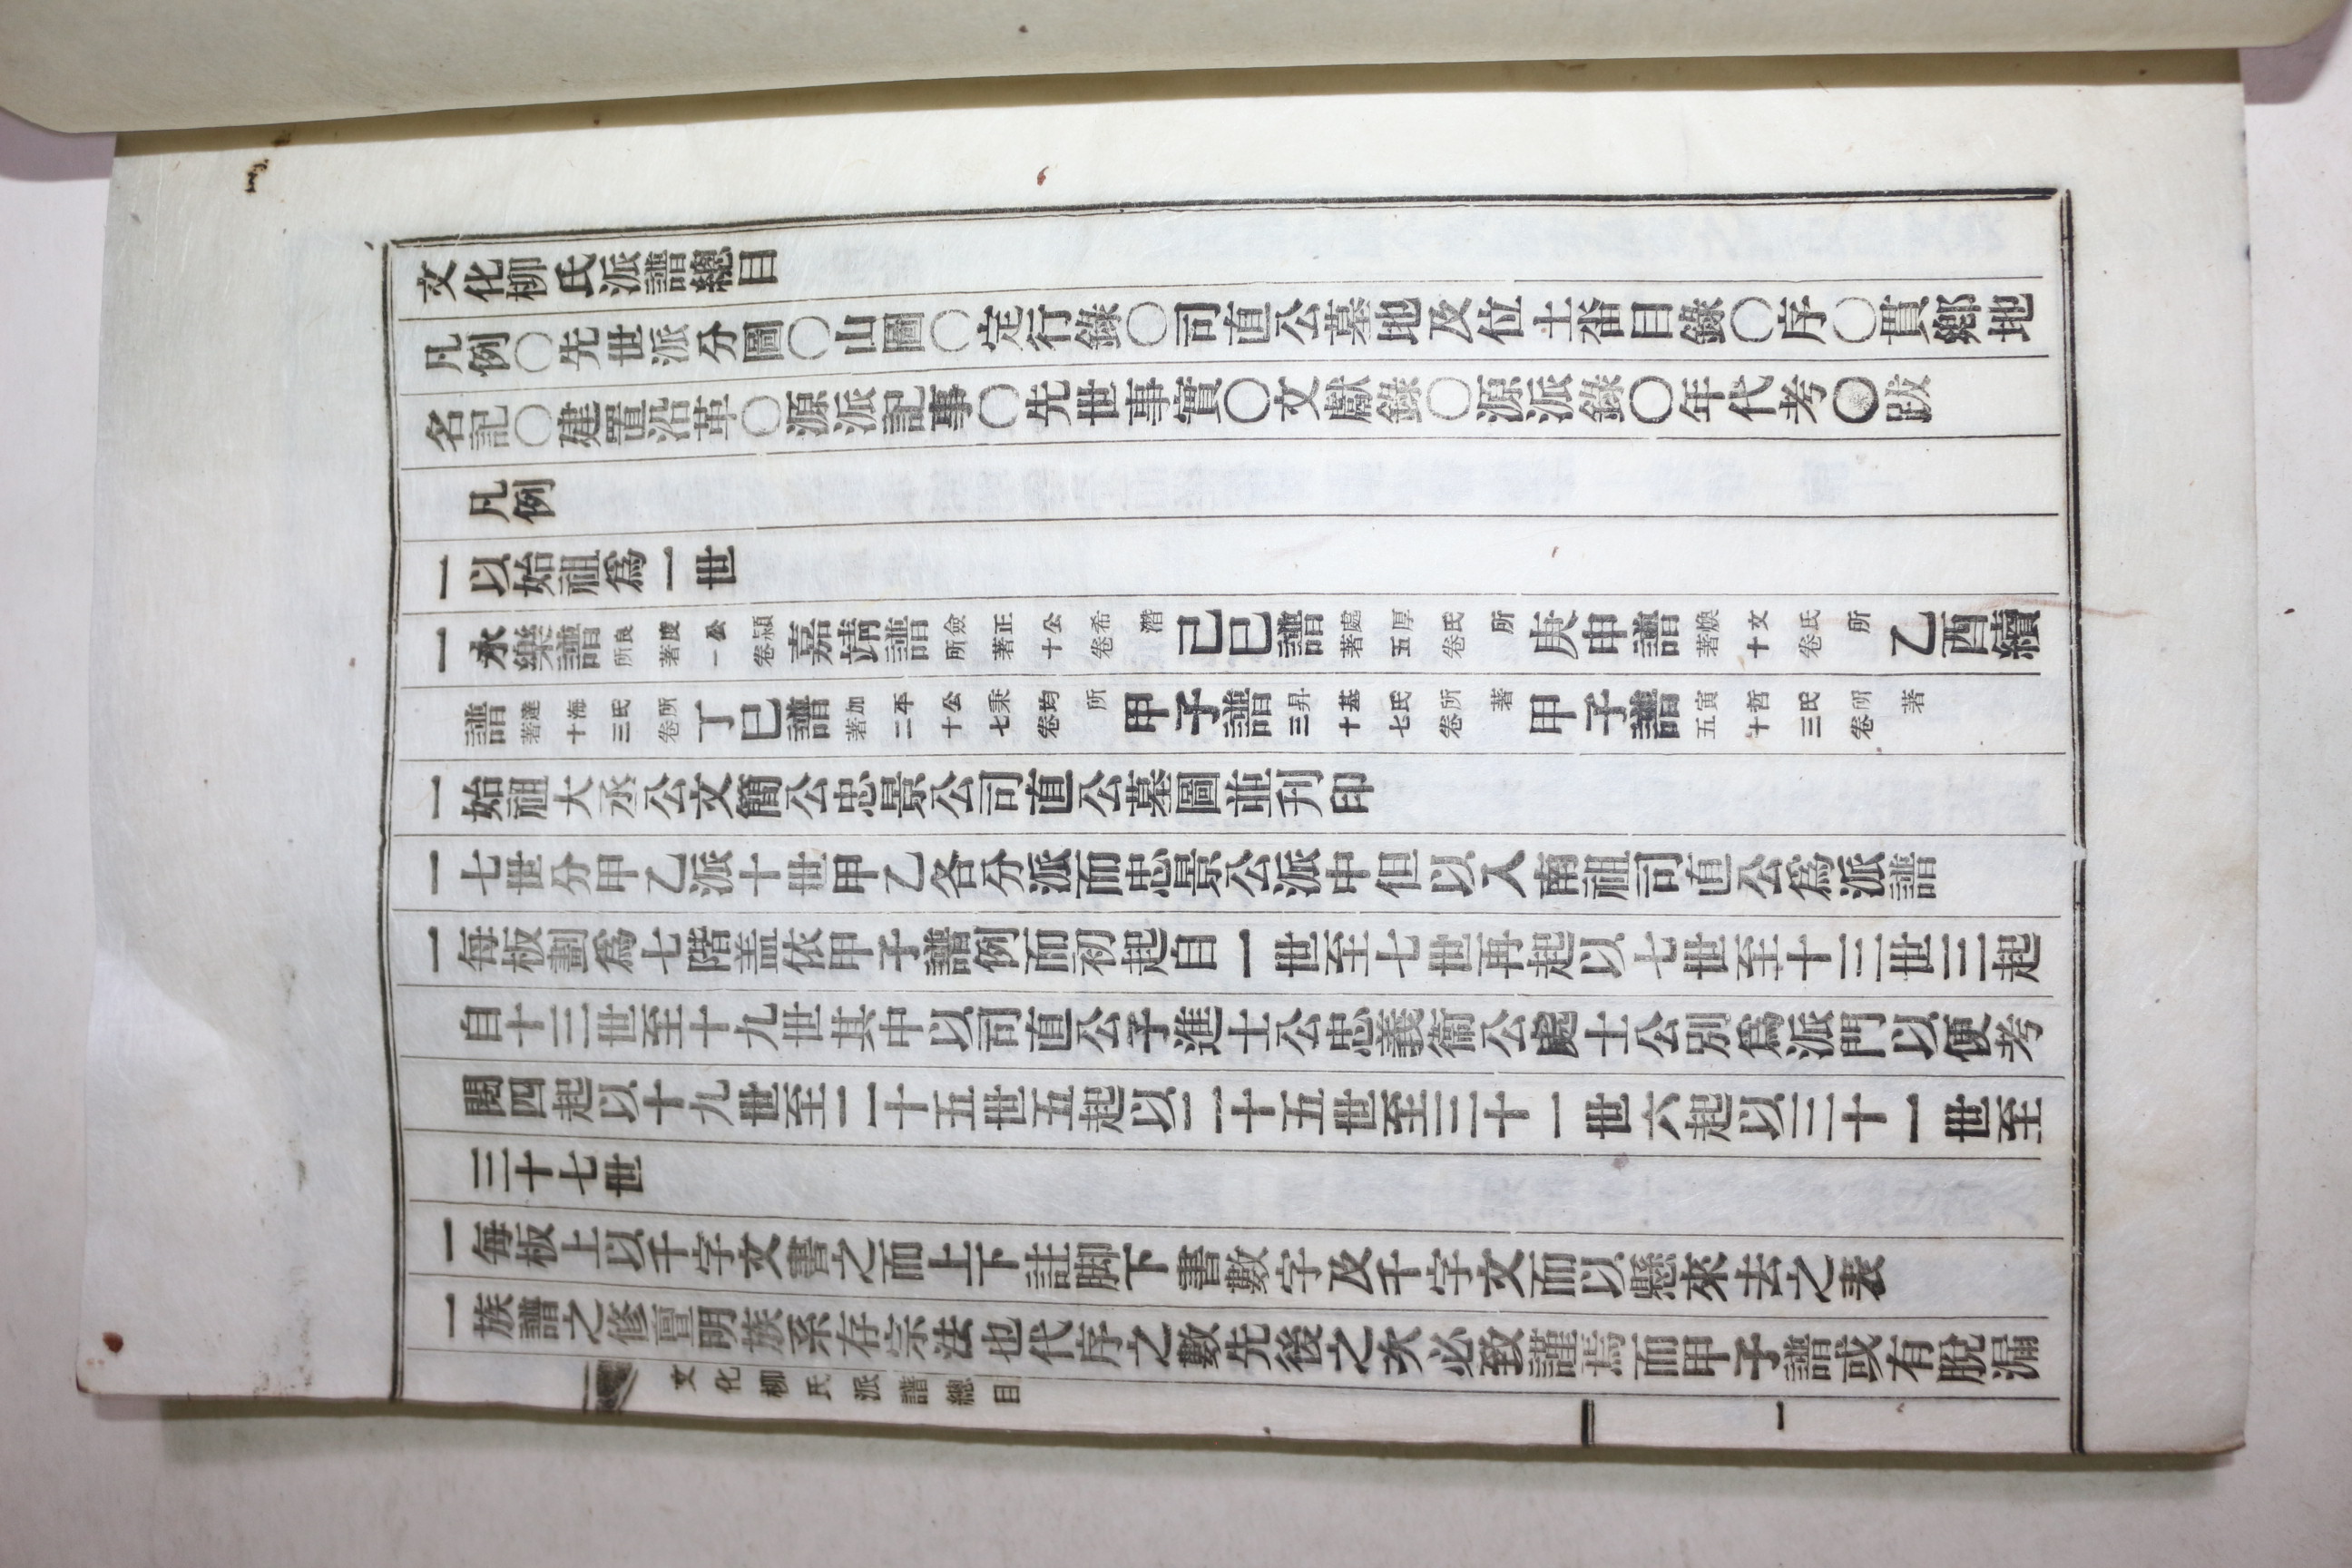 文化柳氏派譜總目
凡例○先世派分圖○山圖○定行錄○司直公墓地及位土畓目錄○序○貫鄕地
名記○建置沿革○源派記事○先世事實○文獻錄○源派錄○年代考○跋
凡例
一以始祖爲一世
一永樂譜良度公穎所著一卷嘉靖譜僉正公希潛所著十卷己巳譜處厚氏所著五卷庚申譜煥文氏所著十卷乙酉續
譜達海氏所著十三卷丁巳譜加平公秉均所著二十七卷甲子譜昇基氏所著三十七卷甲子譜寅哲氏所著五十三卷
一始祖大丞公文簡公忠景公司直公墓圖並刊印
一七世分甲乙派十世甲乙各分派而忠景公派中但以入南祖司直公爲派譜
一每板劃爲七階盖依甲子譜例而初起自一世至七世再起以七世至十三世三起
自十三世至十九世其中以司直公子進士公忠義衛公處士公別爲派門以便考
閱四起以十九世至二十五世五起以二十五世至三十一世六起以三十一世至
三十七世
一每板上以千字文書之而上下註脚下書數字及千字文而以懸來去之表
一族譜之修亶明族系存宗法也代序之數先後之次必致謹焉而甲子譜或有脫漏
文化柳氏派譜總目 一